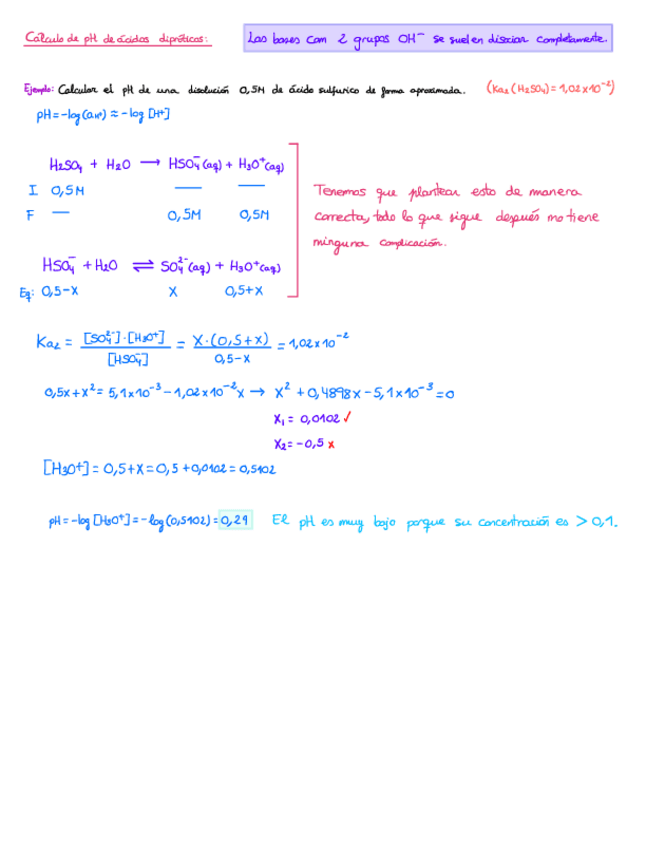 Cálculo de pH de ácidos dipróticos:
Las bases com 2 grupos OH⁻ se suelen disociar completamente.
Ejemplo: Calcular el pH de una disolución 0,5M de ácido sulfurico de forma aproximada. (Ka₂ (H₂SO₄) = 1,02x10⁻²)
pH = -log(aH⁺) ≈ -log [H⁺]
H₂SO₄ + H₂O → HSO₄⁻(aq) + H₃O⁺(aq)
I 0,5M — —
F — 0,5M 0,5M
Tenemos que plantear esto de manera
correcta, todo lo que sigue después no tiene
ninguna complicación.
HSO₄⁻ + H₂O ⇌ SO₄²⁻(aq) + H₃O⁺(aq)
Eq: 0,5-x x 0,5+x
Ka₂ = [SO₄²⁻]·[H₃O⁺] / [HSO₄⁻] = x·(0,5+x) / 0,5-x = 1,02x10⁻²
0,5x + x² = 5,1x10⁻³ - 1,02x10⁻²x → x² + 0,4898x - 5,1x10⁻³ = 0
x₁ = 0,0102 ✓
x₂ = -0,5 x
[H₃O⁺] = 0,5+x = 0,5 + 0,0102 = 0,5102
pH = -log [H₃O⁺] = -log(0,5102) = 0,29 El pH es muy bajo porque su concentración es > 0,1.